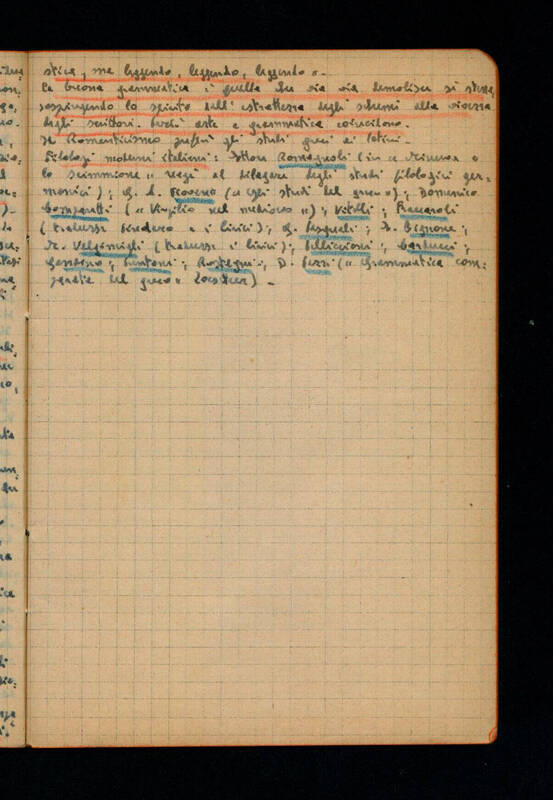 stica, ma leggendo, leggendo, leggendo ».
La buona grammatica è quella che via via demolisce se stessa,
sospingendo lo spirito dall'astrattezza degli schemi alla vivezza
degli scrittori. Perciò arte e grammatica coincidono.
Il Romanticismo preferì gli studi greci ai latini.
Filologi moderni italiani: Ettore Romagnoli (in « Minerva e
lo scimmione » reagì al dilagare degli studi filologici ger-
manici); G. A. (« Gli studi del greco »); Domenico
Comparetti (« Virgilio nel medioevo »); Vitelli; Fraccaroli
(tradusse Pindaro e i lirici); G. Pasquali; E. Bignone;
M. Valgimigli (tradusse i lirici); Pellicioni; Carducci;
; ; Rostagni; D. Pezzi (« Grammatica com-
parata del greco » Loescher).